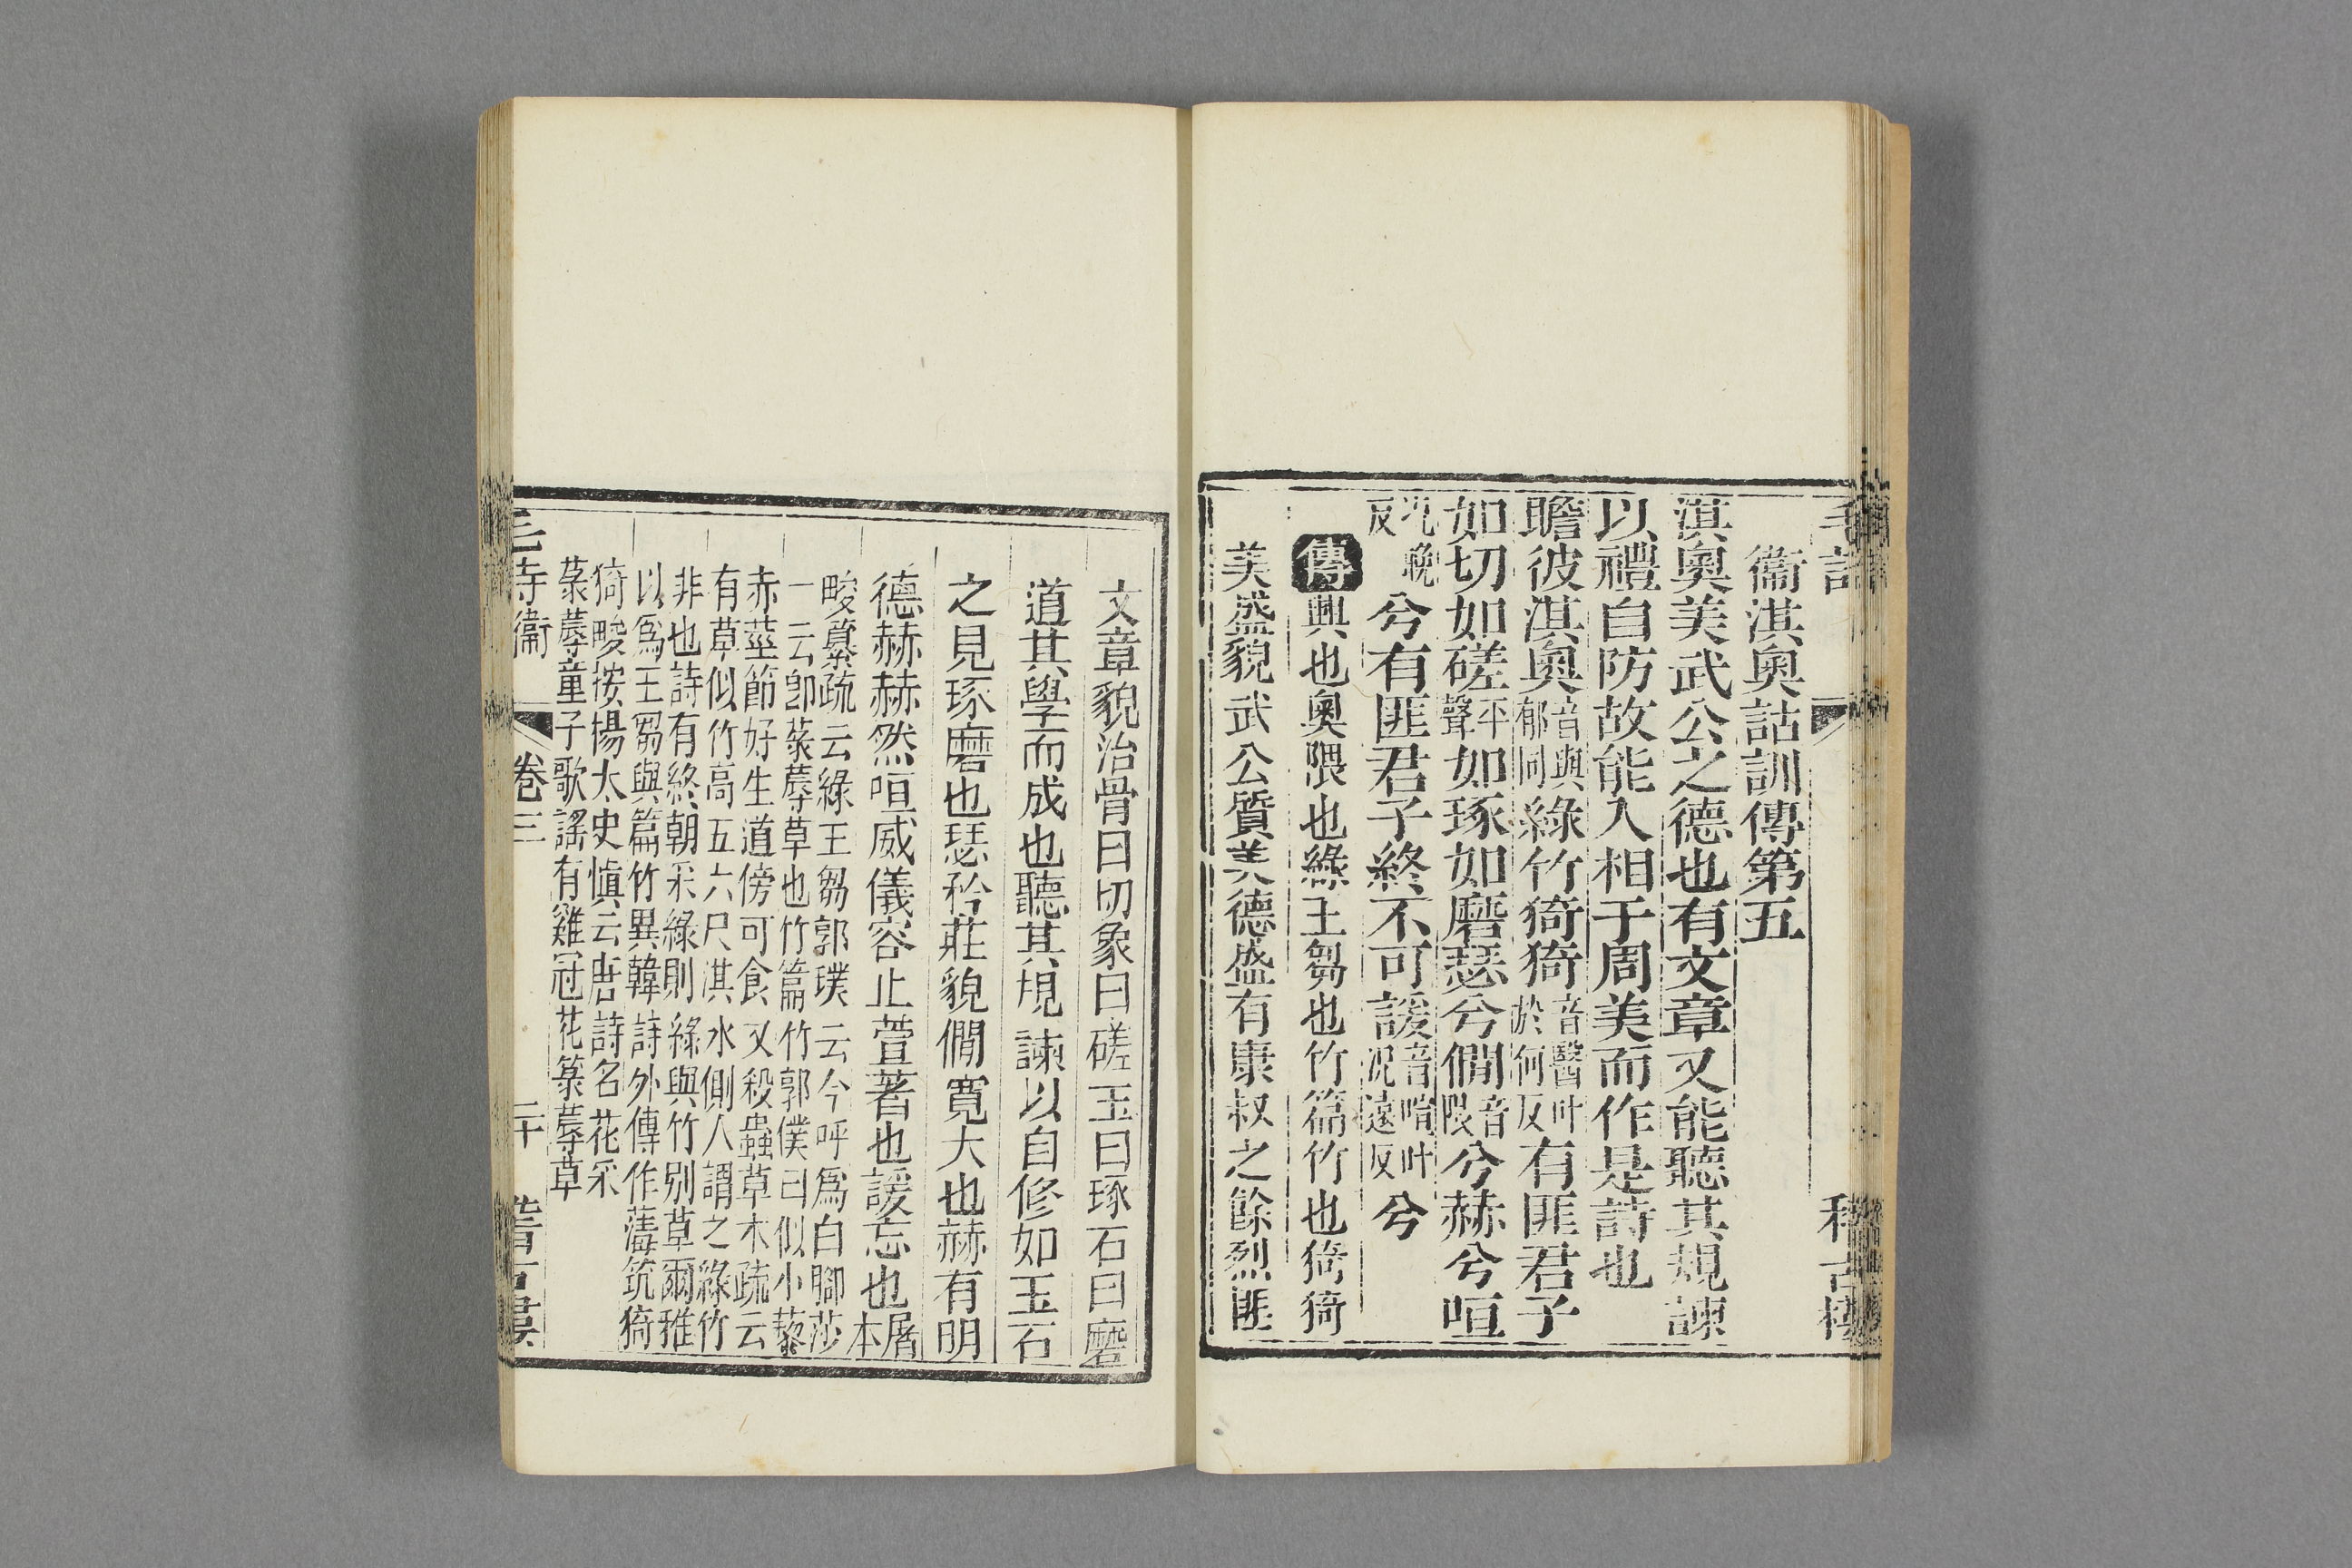 衞淇奧詁訓傳第五
淇奧美武公之德也有文章又能聽其規諫
以禮自防故能入相于周美而作是詩也
瞻彼淇奧音與郁同綠竹猗猗音醫叶於何反有匪君子
如切如磋平聲如琢如磨瑟兮僩音限兮赫兮咺
況晚反兮有匪君子終不可諼音喧叶況遠反兮
傳興也奧隈也綠王芻也竹篇竹也猗猗
美盛貌武公質美德盛有康叔之餘烈匪
文章貌治骨曰切象曰磋玉曰琢石曰磨
道其學而成也聽其規諫以自修如玉石
之見琢磨也瑟矜莊貌僩寬大也赫有明
德赫赫然咺威儀容止萱著也諼忘也屠本
畯纂疏云綠王芻郭璞云今呼爲白腳莎
一云卽菉蓐草也竹篇竹郭僕曰似小藜
赤莖節好生道傍可食又殺蟲草木疏云
有草似竹高五六尺淇水側人謂之綠竹
非也詩有終朝采綠則綠與竹别草爾雅
以爲王芻與篇竹異韓詩外傳作薄筑猗
猗畯按楊太史愼云唐詩名花采
菉蓐童子歌謡有雞冠花菉蓐草
卷三
二十